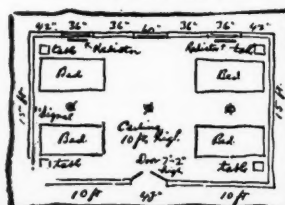 42" 36" 36" 60" 36" 36" 42"
table Radiator Radiator table
Bed Bed
15 ft. 15 ft.
Signal
Ceiling
10 ft. High.
Bed Bed
Door 7'-2"
high
table table
10 ft 48" 10 ft